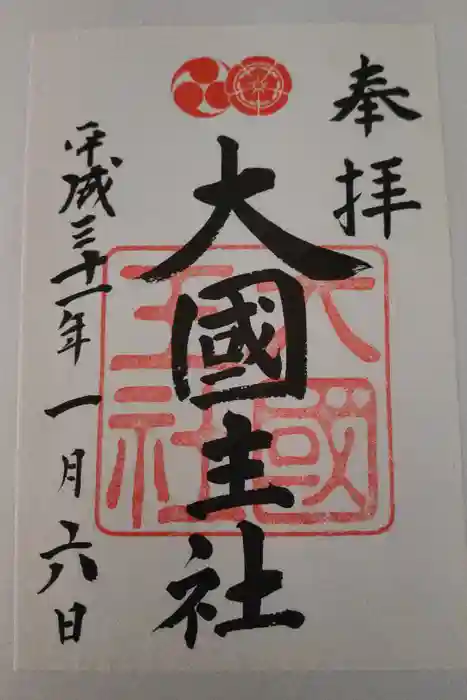 奉拝
大國主社
大國主社
平成三十一年一月六日